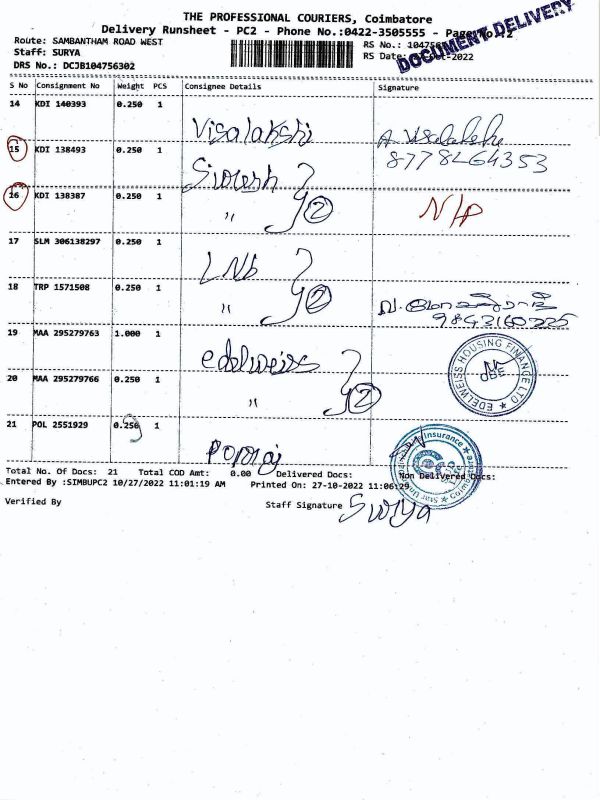 THE PROFESSIONAL COURIERS, Coimbatore
Delivery Runsheet - PC2 - Phone No.:0422-3505555 - Page No.
Route: SAMBANTHAM ROAD WEST
RS No.:
Staff: SURYA
RS Date: -2022
DRS No.: DCJB104756302
DOCUMENT DELIVERY
S No Consignment No Weight PCS Consignee Details Signature
14 KDI 140393 0.250 1
Visalakshi
8778464353
15 KDI 138493 0.250 1
Suresh
16 KDI 138387 0.250 1
" 2
17 SLM 306138297 0.250 1
LNb
18 TRP 1571508 0.250 1
" 2
19 MAA 295279763 1.000 1
edelweiss
EDELWEISS HOUSING FINANCE LTD
20 MAA 295279766 0.250 1
" 2
21 POL 2551929 0.250 1
Insurance
Total No. Of Docs: 21 Total COD Amt: 0.00 Delivered Docs: Non Delivered Docs:
Entered By :SIMBUPC2 10/27/2022 11:01:19 AM Printed On: 27-10-2022 11:06:29
Verified By
Staff Signature Surya